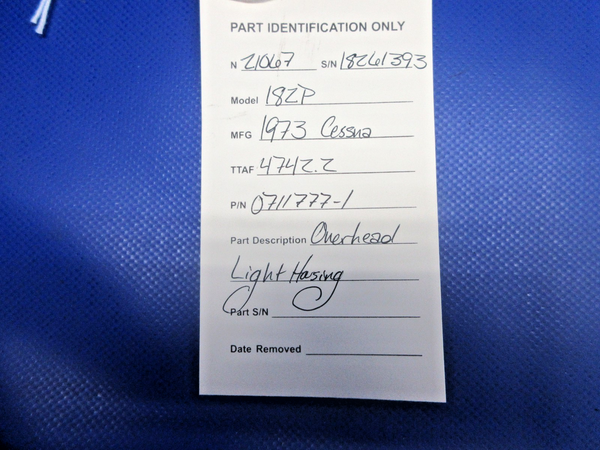 PART IDENTIFICATION ONLY
N 21067 S/N 18261393
Model 182P
MFG 1973 Cessna
TTAF 4742.2
P/N 0711777-1
Part Description Overhead
Light Hosing
Part S/N
Date Removed